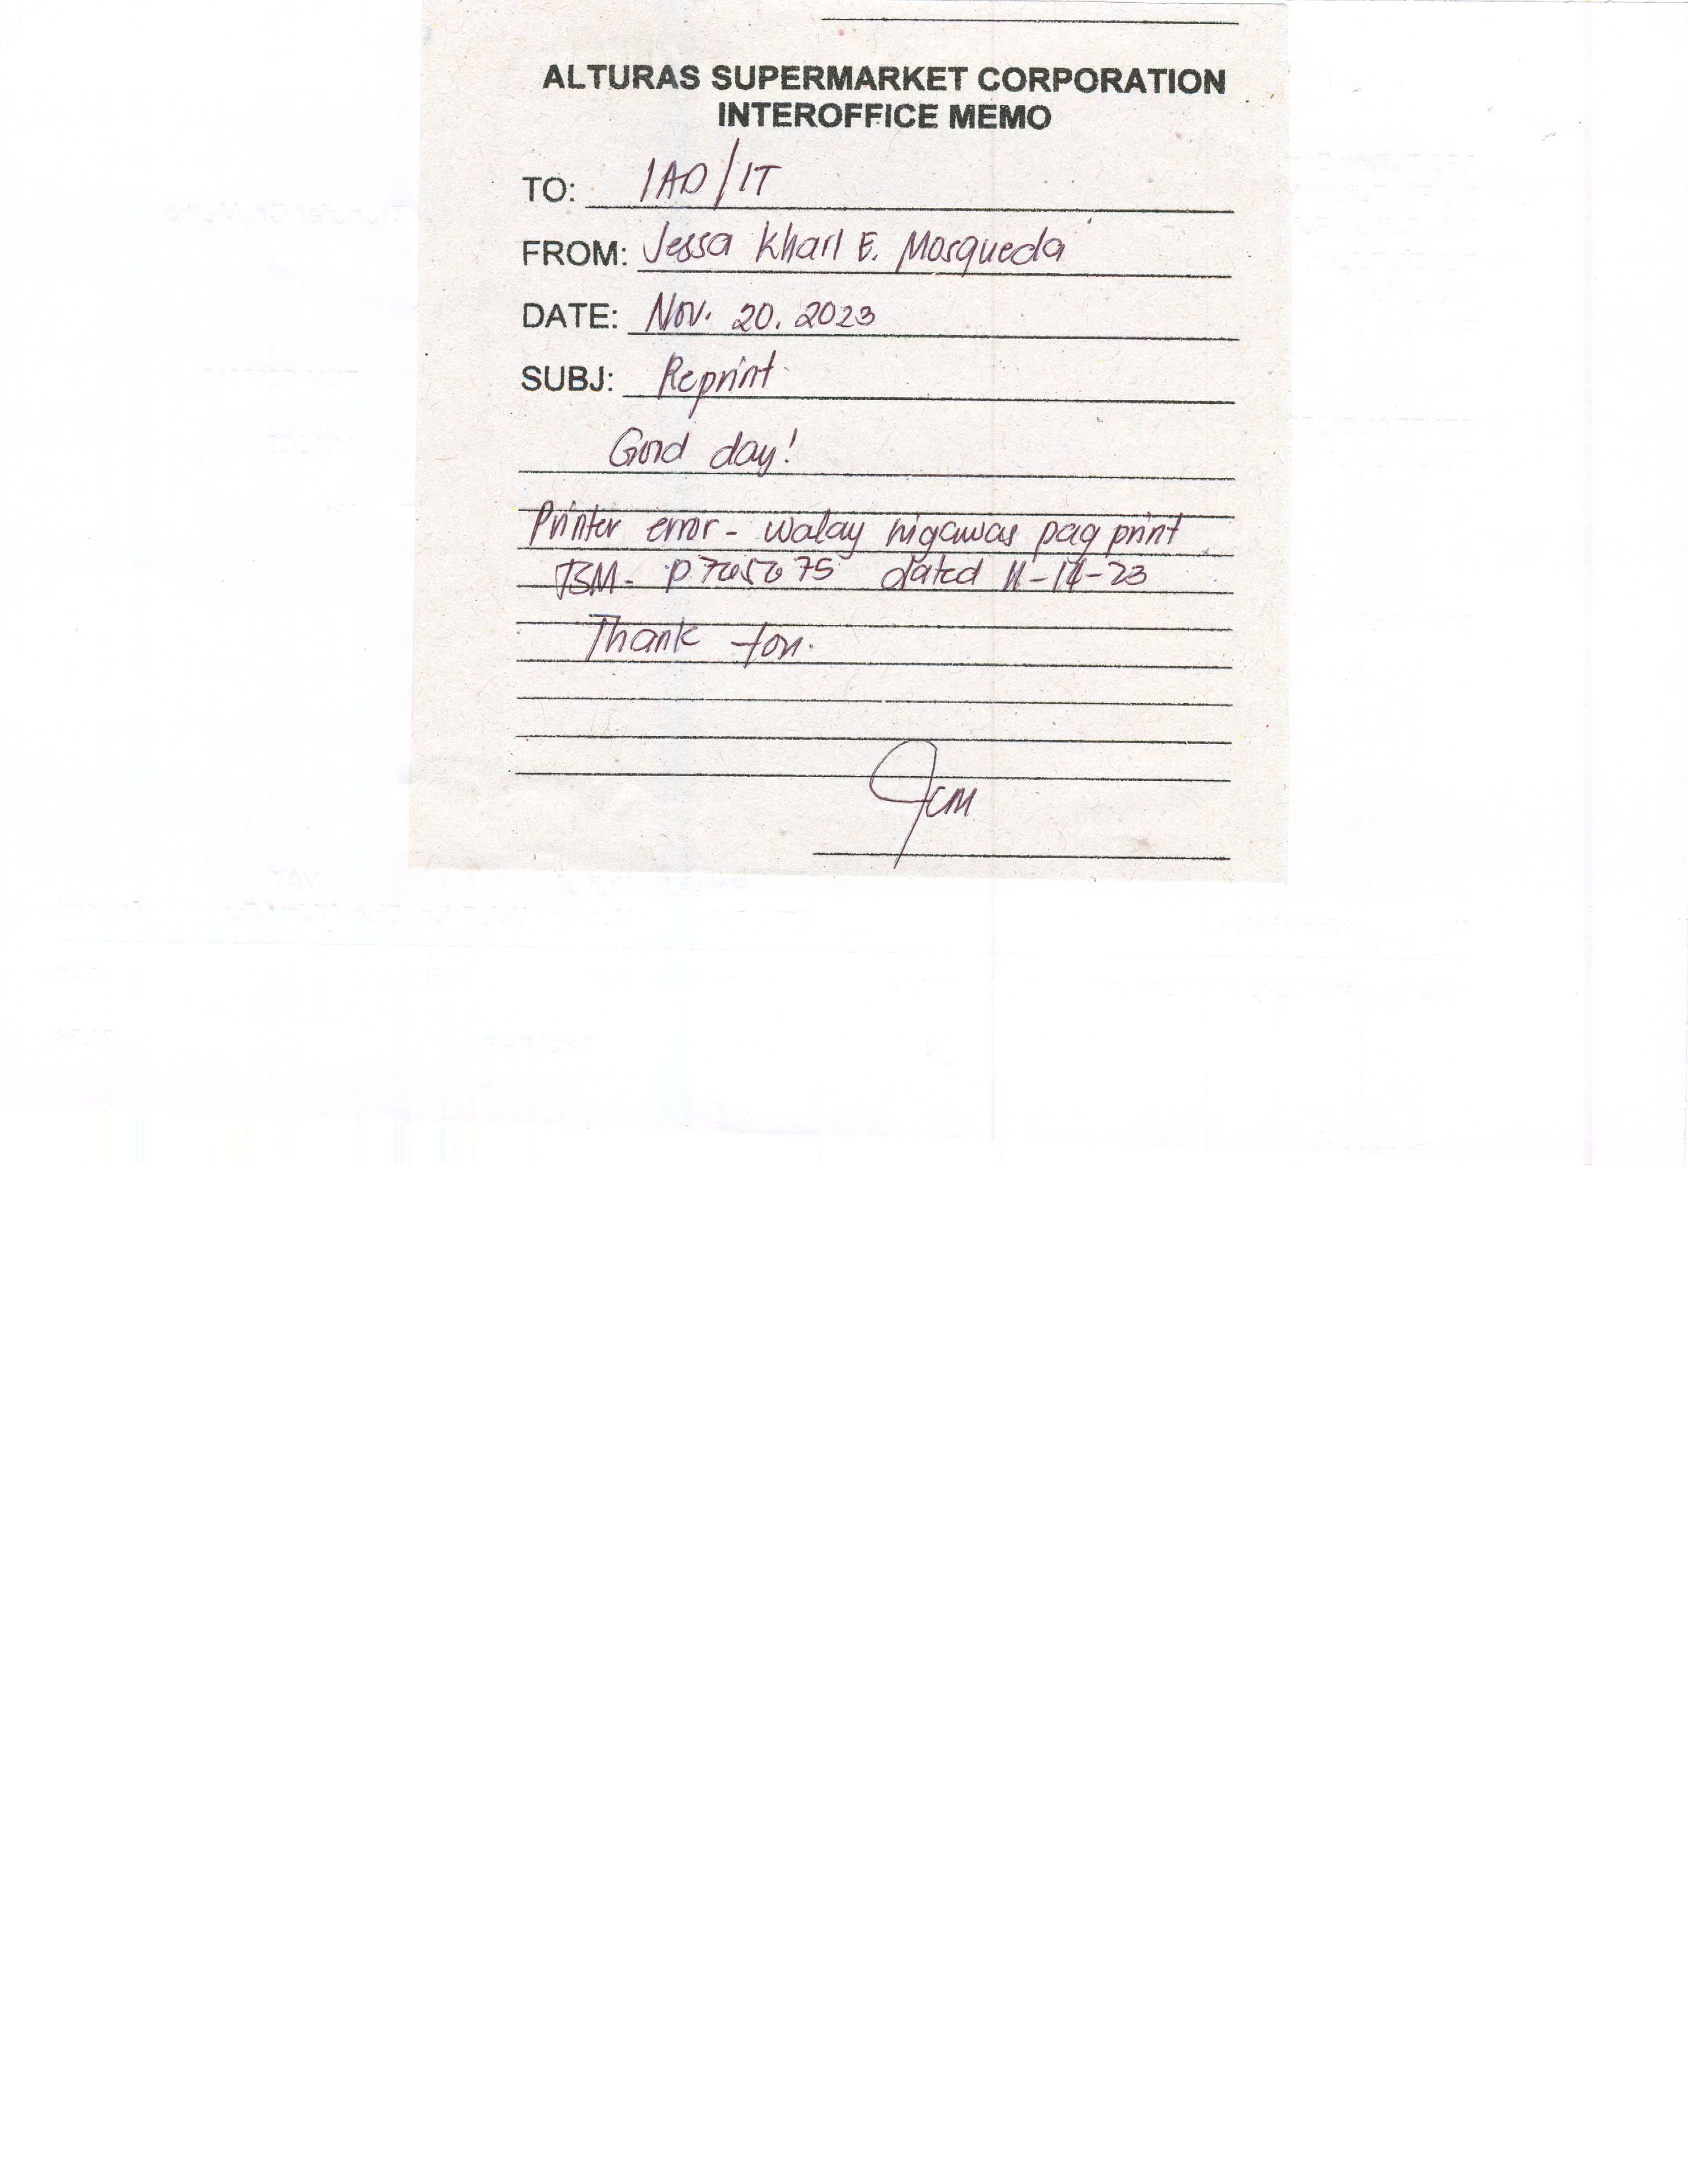 ALTURAS SUPERMARKET CORPORATION
INTEROFFICE MEMO
TO: IAD/IT
FROM: Jessa Kharl E. Mosqueda
DATE: Nov. 20, 2023
SUBJ: Reprint
Good day!
Printer error - walay nigawas pag print
dated 11-14-23
Thank You.